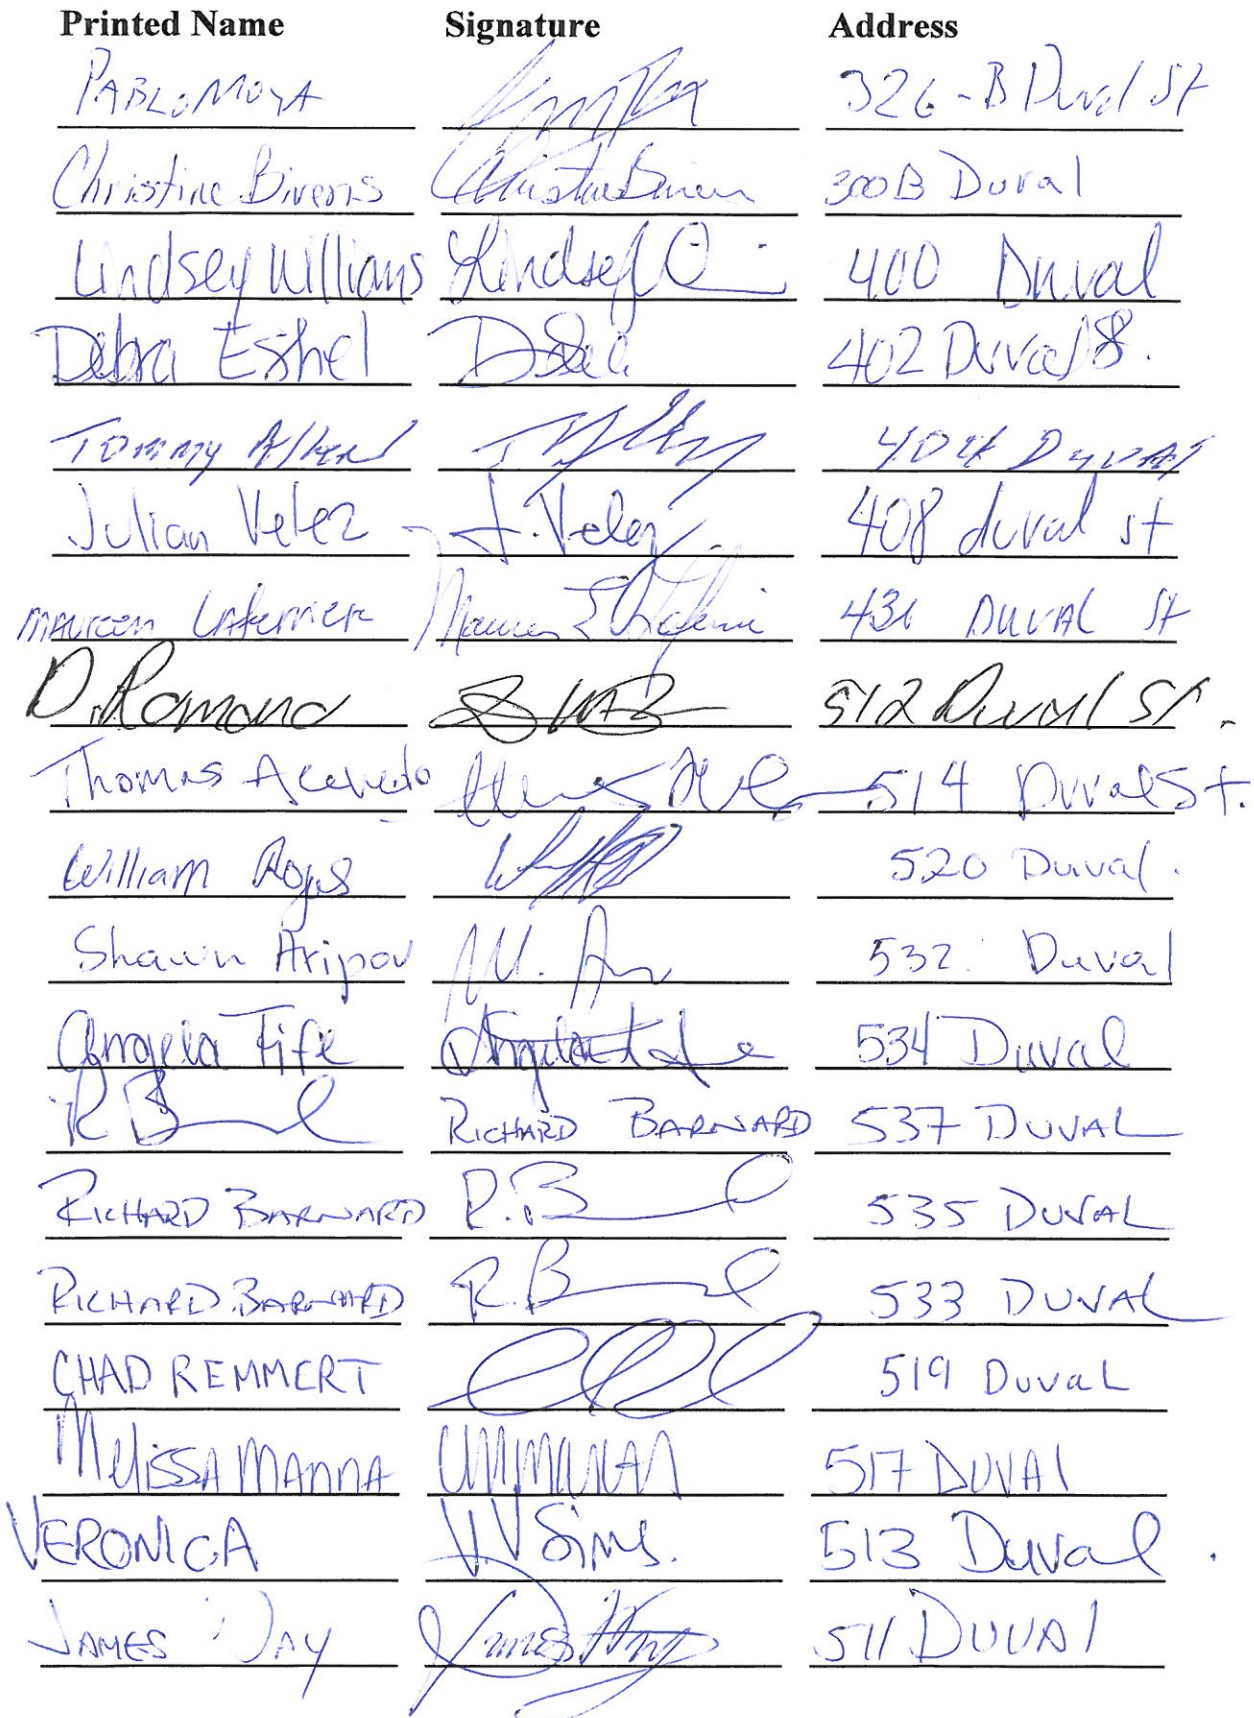 Printed Name Signature Address
PABLO MOYA 326-B Duval St
Christine Bivens Christine Bivens 300B Duval
Lindsey Williams Lindsey 400 Duval
Debra Eshel 402 Duval St.
Tommy 404 DUVAL
Julian Velez J. Velez 408 duval st
MAUREEN Maureen 431 DUVAL St
D. Romano 512 Duval St.
Thomas Acevedo 514 Duval St.
William 520 Duval.
Shawn Aripov 532 Duval
Angela Fife Angela 534 Duval
R B RICHARD BARNARD 537 DUVAL
RICHARD BARNARD R. B 535 DUVAL
RICHARD BARNARD R. B 533 DUVAL
CHAD REMMERT 519 DuvaL
Melissa MANNA 517 DUVAl
VERONICA V Sims. 513 Duval.
JAMES DAY James 511 DUVAl